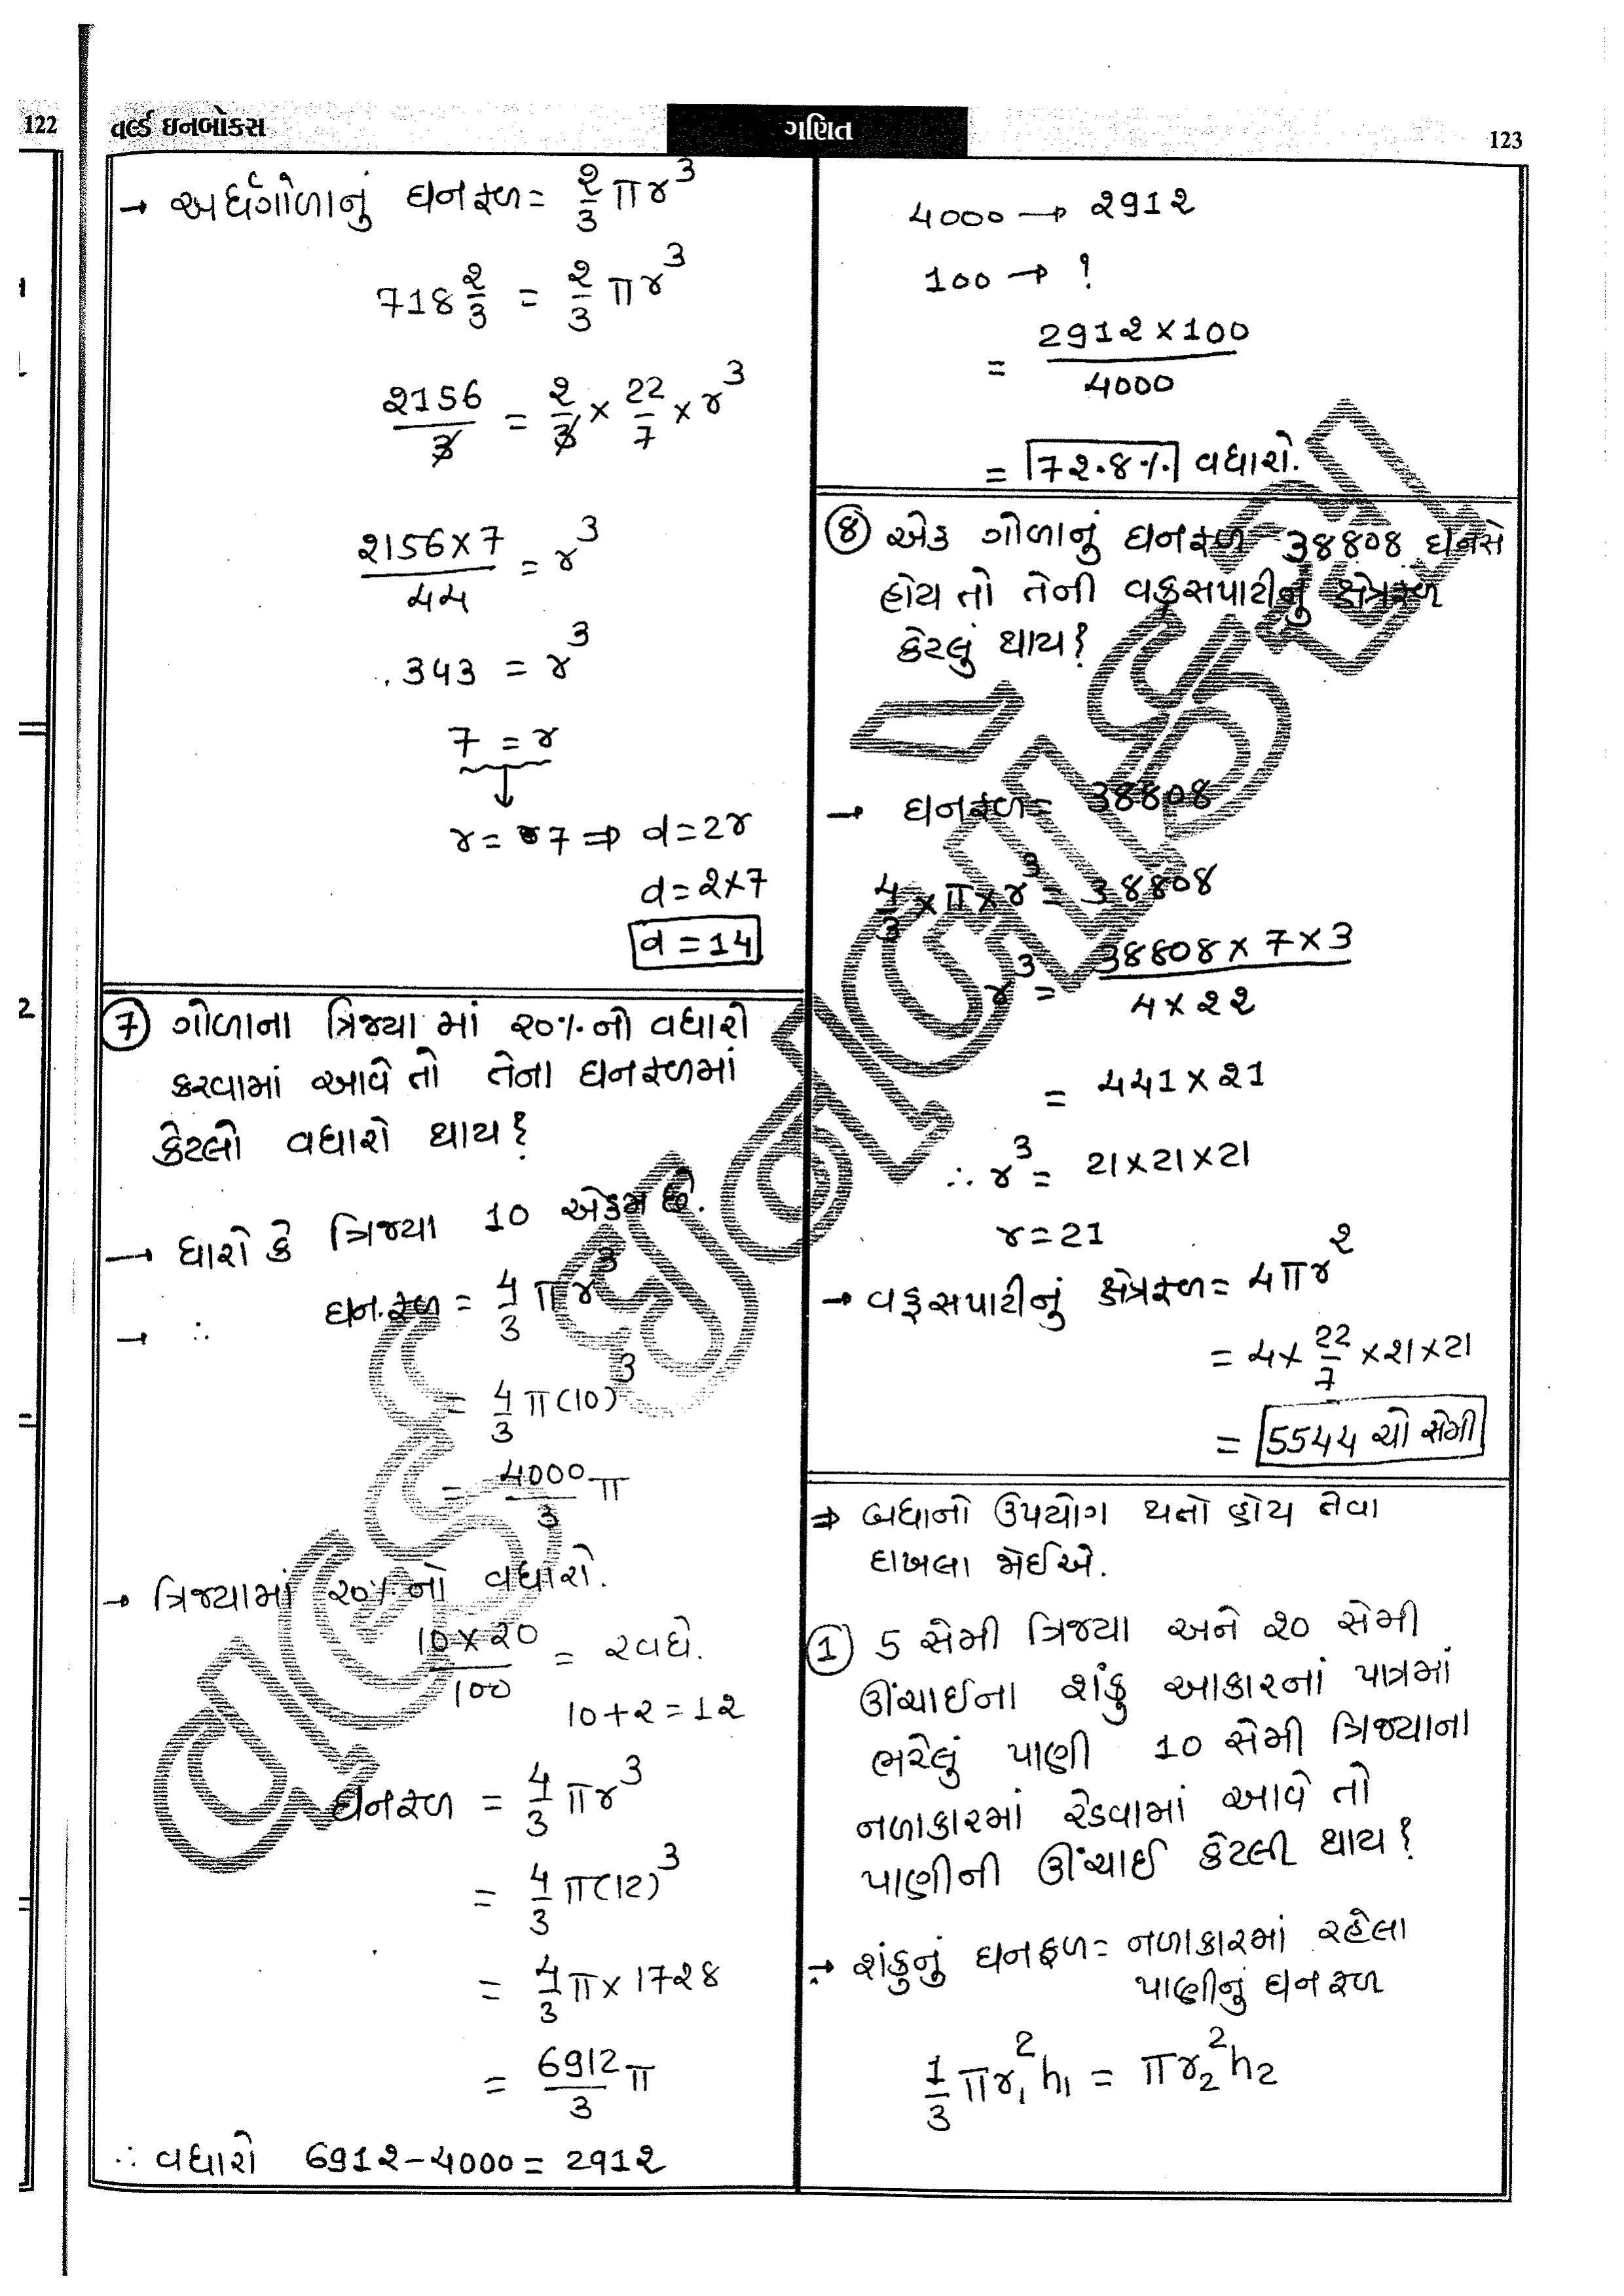 122
વર્લ્ડ ઇનબોકસ
ગણિત
123
→ અર્ધગોળાનું ઘનફળ = 2/3 πr³
718 2/3 = 2/3 πr³
2156/3 = 2/3 × 22/7 × r³
2156×7/44 = r³
∴ 343 = r³
7 = r
r = 7 ⇒ d = 2r
d = 2×7
d = 14
(7) ગોળાના ત્રિજ્યામાં 20% નો વધારો
કરવામાં આવે તો તેના ઘનફળમાં
કેટલો વધારો થાય?
→ ધારો કે ત્રિજ્યા 10 એકમ છે.
→ ∴ ઘનફળ = 4/3 πr³
= 4/3 π(10)³
= 4000/3 π
→ ત્રિજ્યામાં 20% નો વધારો.
10×20/100 = 2 વધે.
10+2=12
ઘનફળ = 4/3 πr³
= 4/3 π(12)³
= 4/3 π × 1728
= 6912/3 π
∴ વધારો 6912-4000 = 2912
4000 → 2912
100 → ?
= 2912×100/4000
= 72.8% વધારો.
(8) એક ગોળાનું ઘનફળ 38808 ઘનસે
હોય તો તેની વક્રસપાટીનું ક્ષેત્રફળ
કેટલું થાય?
→ ઘનફળ = 38808
4/3 × π × r³ = 38808
r³ = 38808×7×3/4×22
= 441×21
∴ r³ = 21×21×21
r=21
→ વક્રસપાટીનું ક્ષેત્રફળ = 4πr²
= 4× 22/7 ×21×21
= 5544 ચો સેમી
⇒ બધાનો ઉપયોગ થતો હોય તેવા
દાખલા જોઈએ.
(1) 5 સેમી ત્રિજ્યા અને 20 સેમી
ઊંચાઈના શંકુ આકારનાં પાત્રમાં
ભરેલું પાણી 10 સેમી ત્રિજ્યાના
નળાકારમાં રેડવામાં આવે તો
પાણીની ઊંચાઈ કેટલી થાય?
→ શંકુનું ઘનફળ = નળાકારમાં રહેલા
પાણીનું ઘનફળ
1/3 πr₁²h₁ = πr₂²h₂
વર્લ્ડ ઇનબોકસ